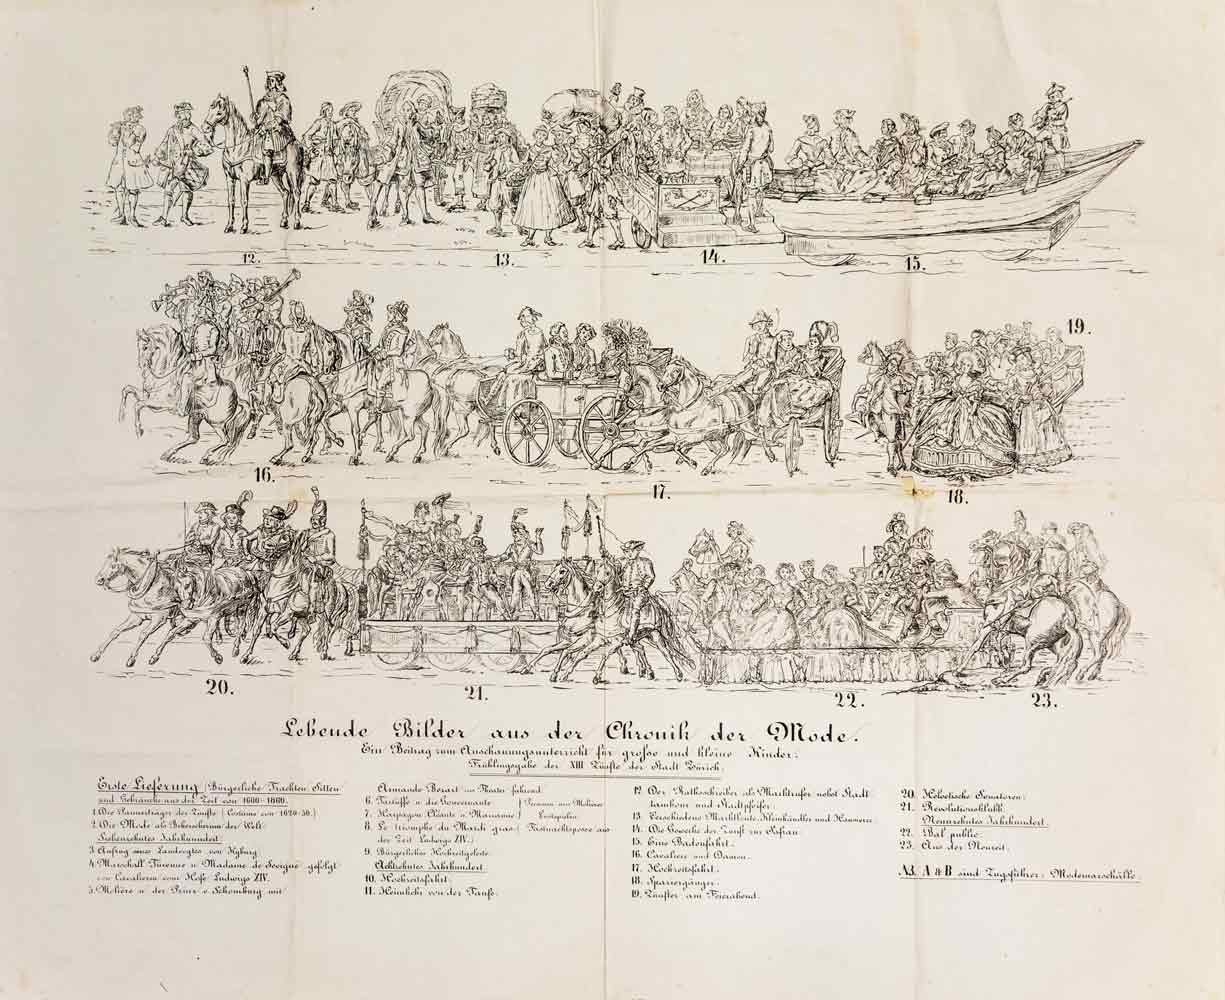 12.
13.
14.
15.
16.
17.
18.
19.
20.
21.
22.
23.
Lebende Bilder aus der Chronik der Mode.
Ein Beitrag zum Anschauungsunterricht für grosse und kleine Kinder.
Frühlingsgabe der XIII Zünfte der Stadt Zürich.
Erste Lieferung (Bürgerliche Trachten, Sitten
und Gebräuche aus der Zeit von 1600-1860.
1. Die Bannerträger der Zünfte (Costüme von 1620-50.)
2. Die Mode als Beherscherin der Welt.
Siebenzehntes Jahrhundert
3. Aufzug eines Landvogtes von Kyburg
4. Marschall Turenne u. Madame de Sevigné gefolgt
von Cavalieren vom Hofe Ludwigs XIV.
5. Molière u. der Prinz v. Schomburg mit
Armande Bejart im Theater fahrend.
6. Tartüffe u. die Gouvernante
7. Harpagon, Cléante u. Marianne
Personen aus Molières
Lustspielen
8. Le triomphe du Mardi gras. (Fastnachtsposse aus
der Zeit Ludwigs XIV.)
9. Bürgerliches Hochzeitgeleite.
Achtzehntes Jahrhundert.
10. Hochzeitsfahrt.
11. Heimkehr von der Taufe.
12. Der Rathschreiber als Marktrufer nebst Stadt-
tambour und Stadtpfeifer.
13. Verschiedene Marktleute, Kleinhändler und
14. Die Gewerbe der Zunft zur Safran.
15. Eine Badenfahrt.
16. Cavaliere und Damen.
17. Hochzeitsfahrt.
18. Spaziergänger.
19. Zünfter am Feierabend.
20. Helvetische Senatoren.
21. Revolutionsklubb.
Neunzehntes Jahrhundert.
22. Bal public.
23. Aus der Neuzeit.
A & B sind Zugsführer: Modemarschälle.